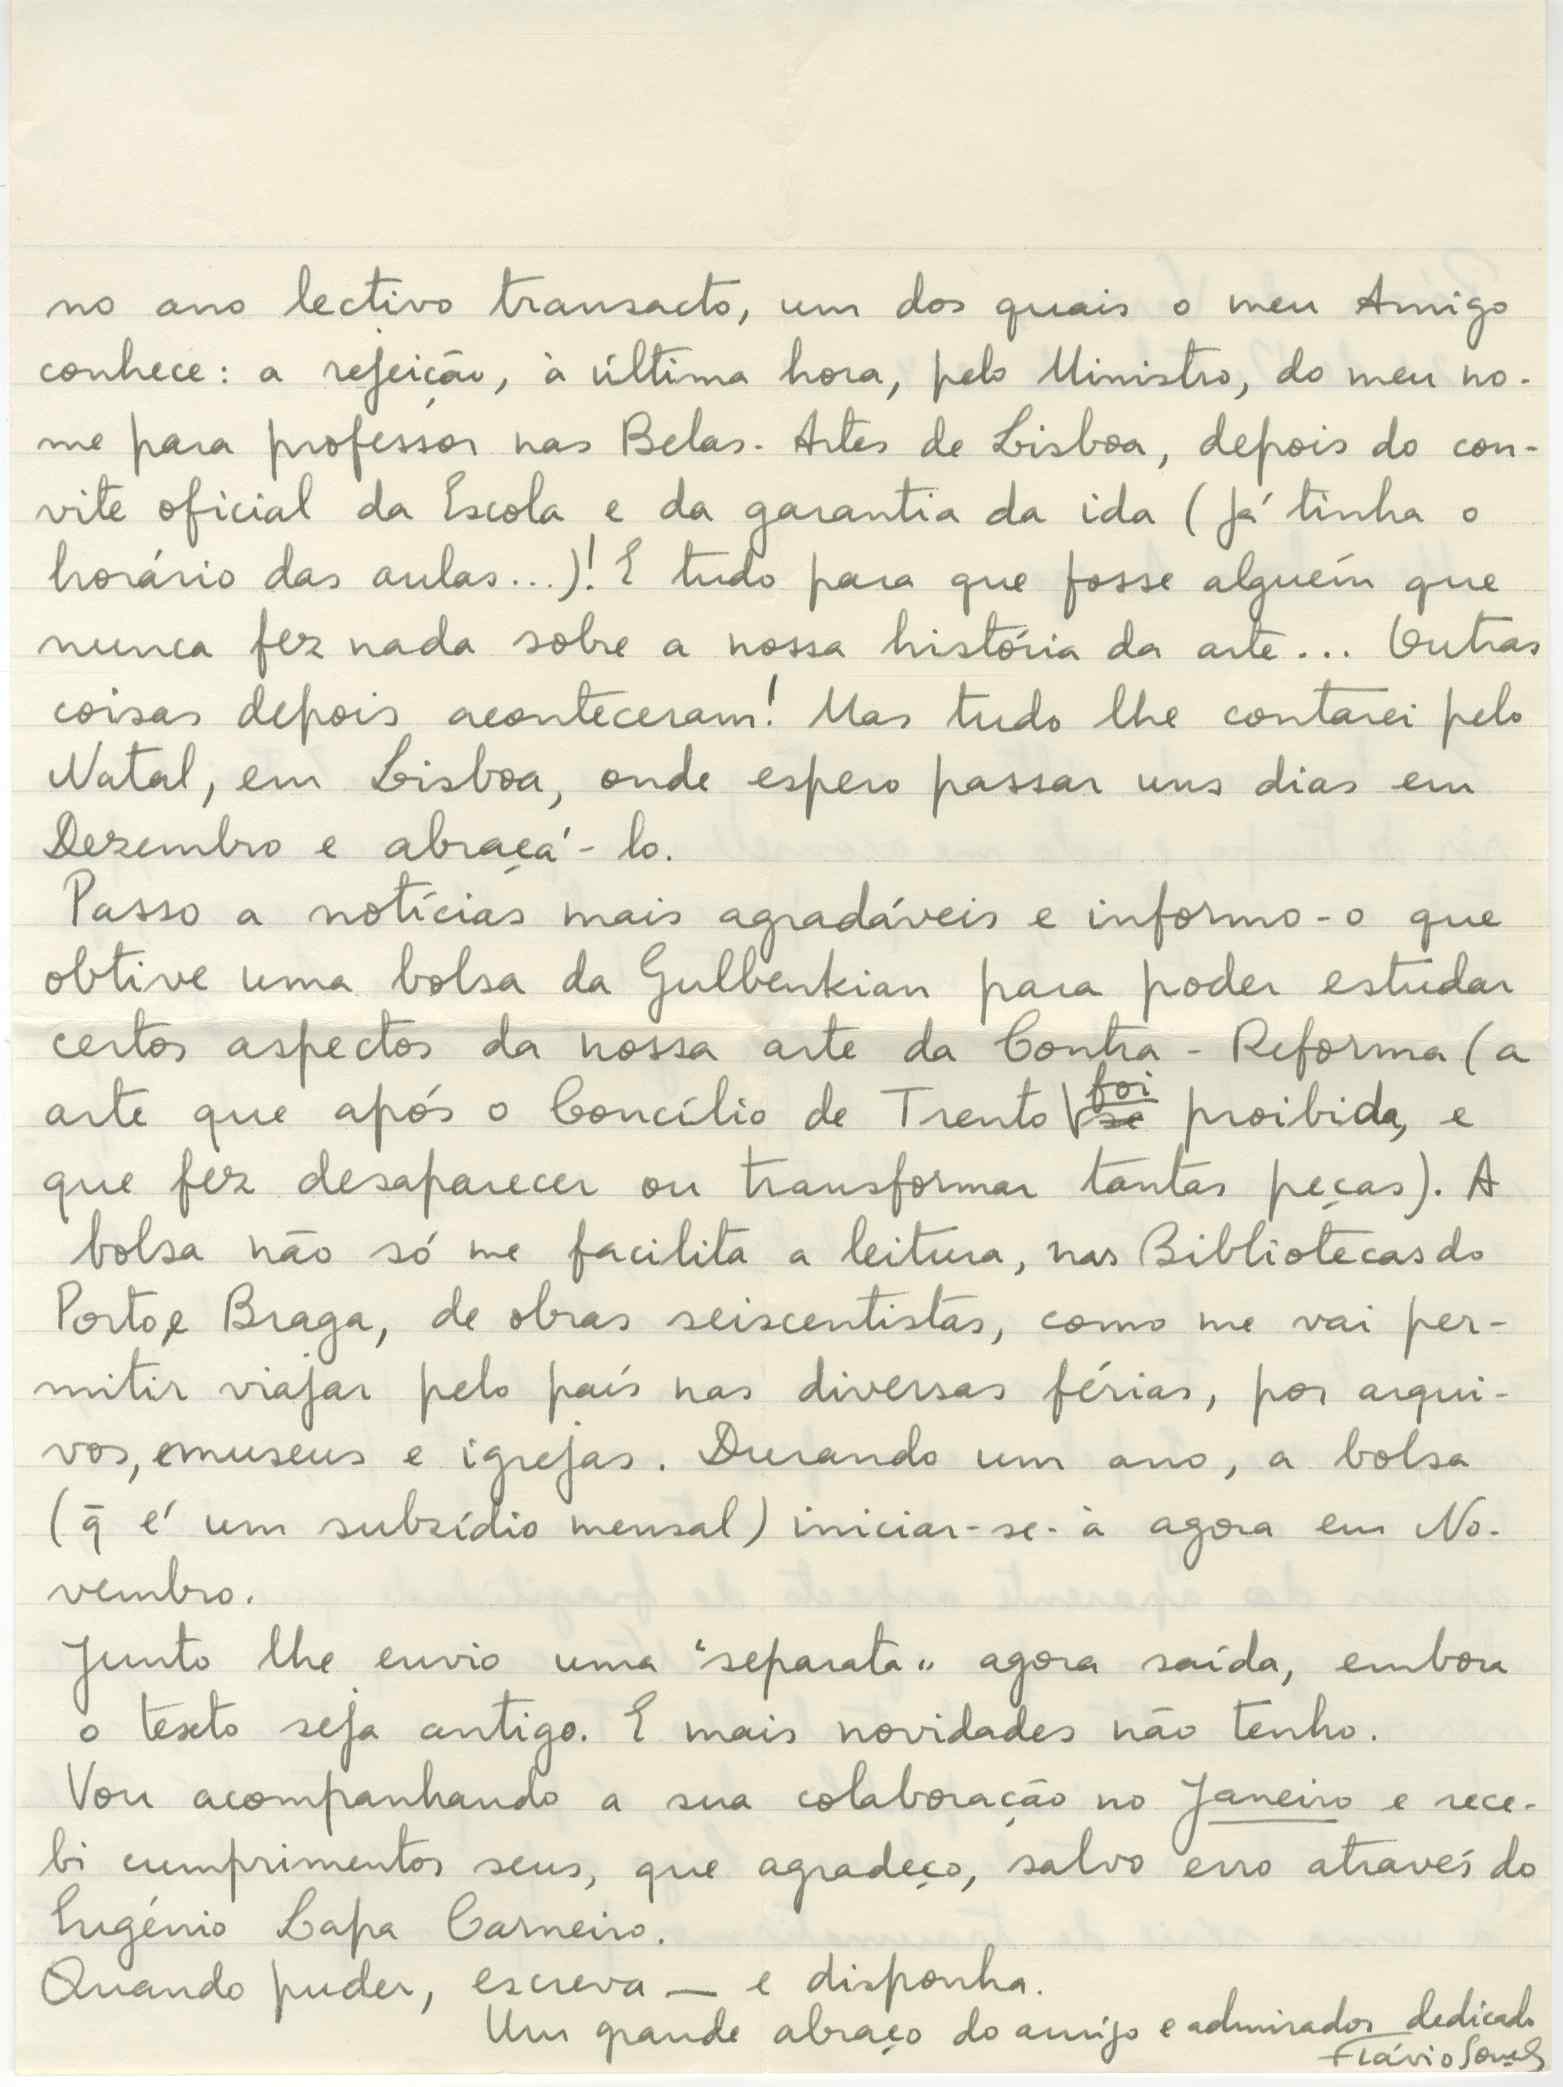 no ano lectivo transacto, um dos quais o meu Amigo
conhece: a rejeição, à última hora, pelo Ministro, do meu no-
me para professor nas Belas-Artes de Lisboa, depois do con-
vite oficial da Escola e da garantia da ida (já tinha o
horário das aulas...)! E tudo para que fosse alguém que
nunca fez nada sobre a nossa história da arte... Outras
coisas depois aconteceram! Mas tudo lhe contarei pelo
Natal, em Lisboa, onde espero passar uns dias em
Dezembro e abraçá-lo.
Passo a notícias mais agradáveis e informo-o que
obtive uma bolsa da Gulbenkian para poder estudar
certos aspectos da nossa arte da Contra-Reforma (a
arte que após o Concílio de Trento foi se proibida, e
que fez desaparecer ou transformar tantas peças). A
bolsa não só me facilita a leitura, nas Bibliotecas do
Porto e Braga, de obras seiscentistas, como me vai per-
mitir viajar pelo país nas diversas férias, por arqui-
vos, museus e igrejas. Durando um ano, a bolsa
(q̄ é um subsídio mensal) iniciar-se-à agora em No-
vembro.
Junto lhe envio uma "separata" agora saída, embora
o texto seja antigo. E mais novidades não tenho.
Vou acompanhando a sua colaboração no Janeiro e rece-
bi cumprimentos seus, que agradeço, salvo erro através do
Eugénio Lapa Carneiro.
Quando puder, escreva — e disponha.
Um grande abraço do amigo e admirador dedicado
Flávio